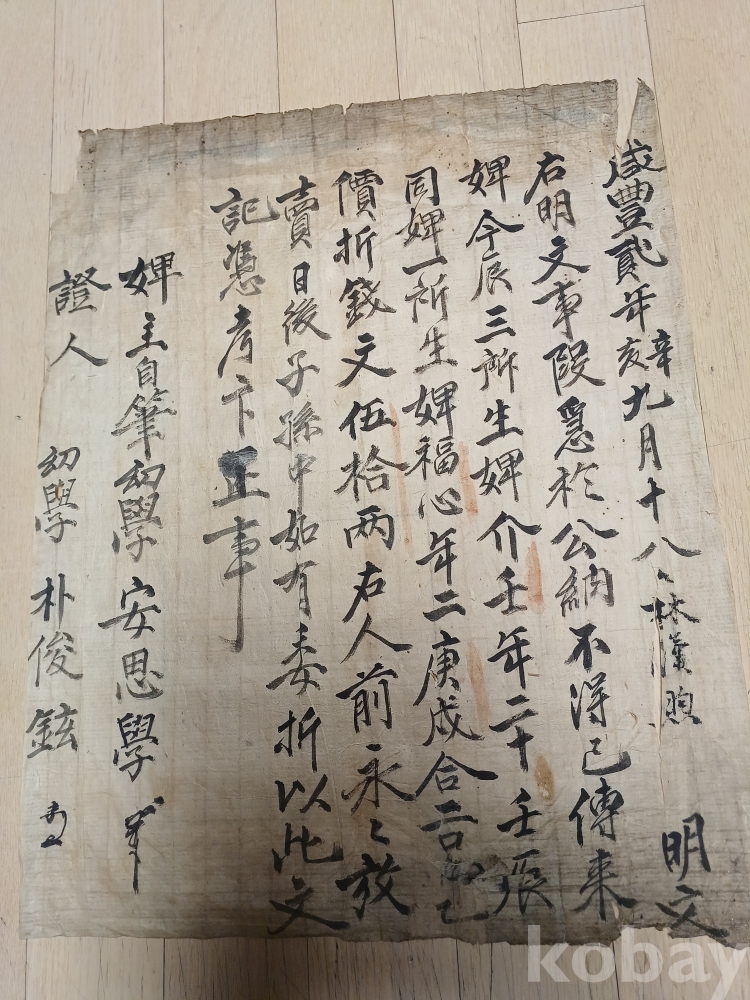 咸豐貳年辛亥九月十八〻林漢煦 明文
右明文事段急於公納不得已傳來
婢今辰三所生婢介壬年二十壬辰
同婢一所生婢福心年二庚戌合二口
價折錢文伍拾両右人前永〻放
賣日後子孫中如有委折以此文
記憑考卞正事
婢主自筆幼學安思學
證人 幼學 朴俊鉉
kobay